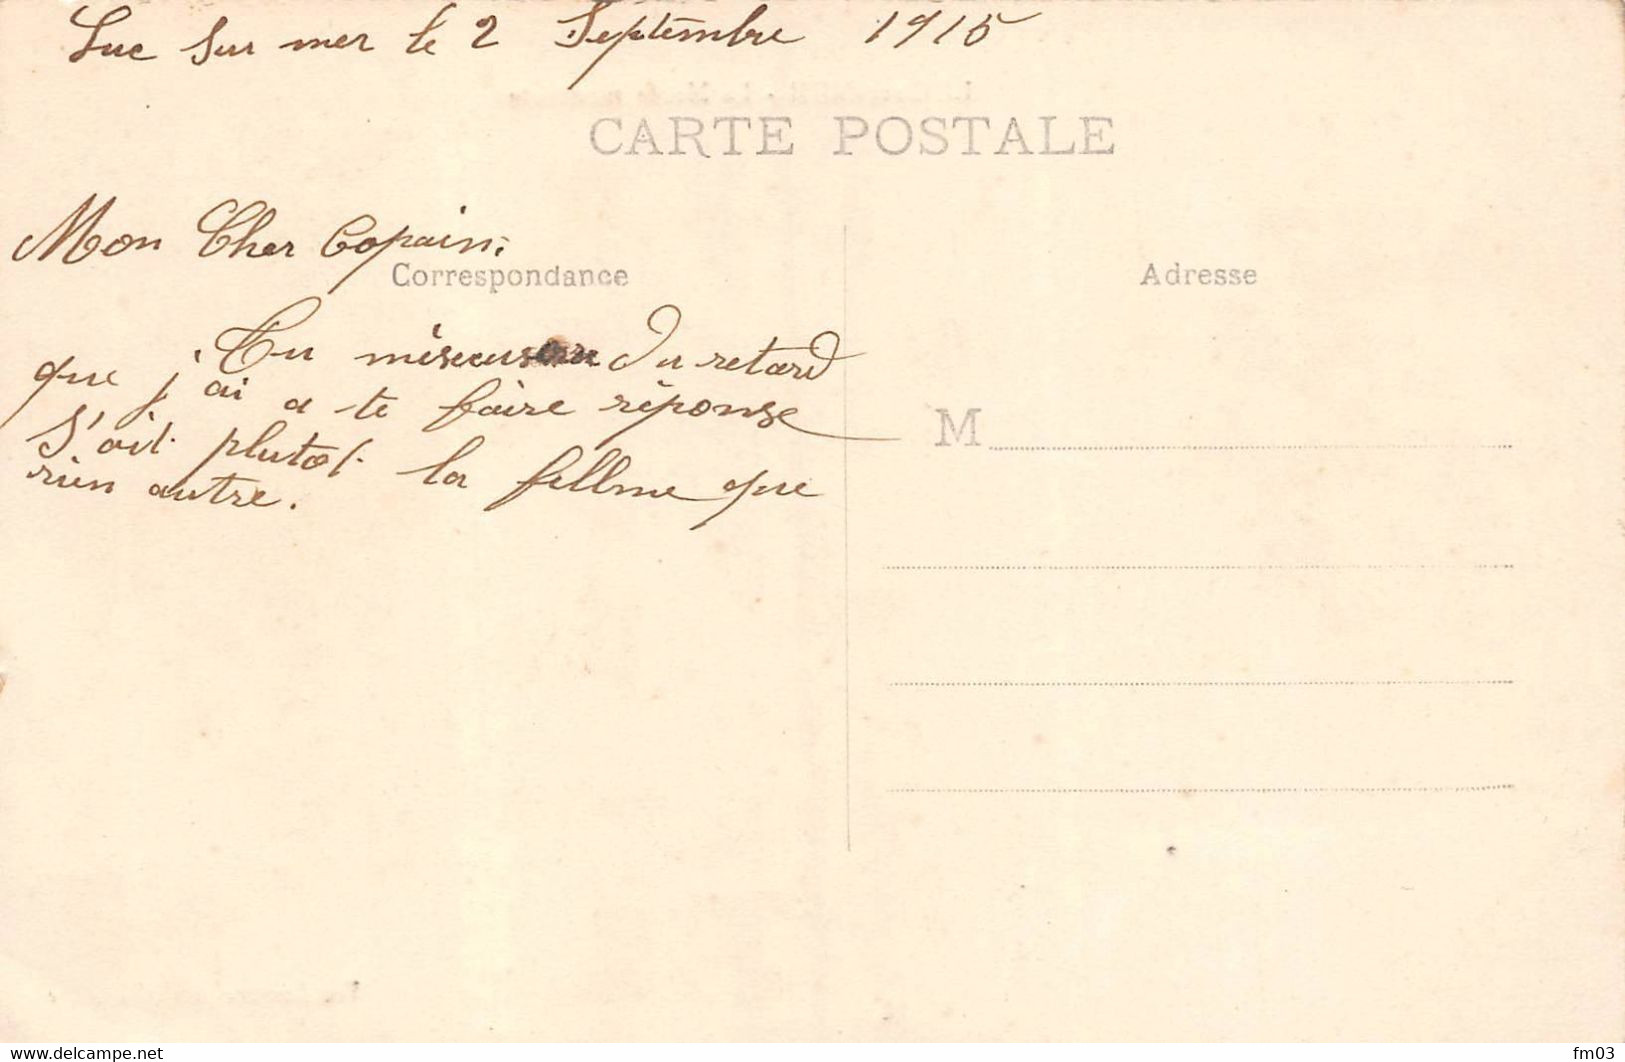 Luc sur mer le 2 Septembre 1915
CARTE POSTALE
Mon Cher Copain.
Correspondance
Adresse
Tu du retard
que j'ai a te faire réponse
M
s'oit plutot la fellme que
rien autre.
Delcampe.net
fm03